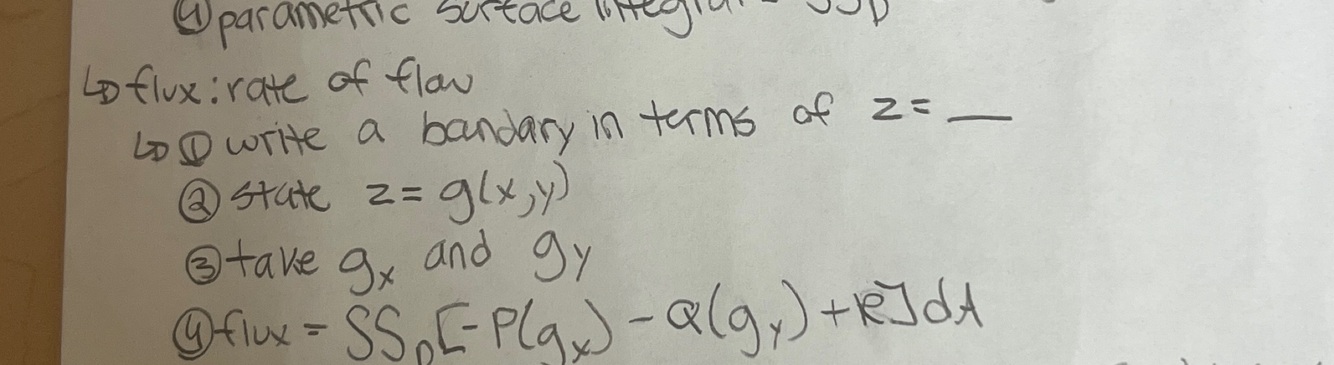 ④ parametric surface integral = SS_D
↳ flux: rate of flow
↳ ① write a bandary in terms of z = __
② state z = g(x,y)
③ take g_x and g_y
④ flux = SS_D [-P(g_x) - Q(g_y) + R] dA